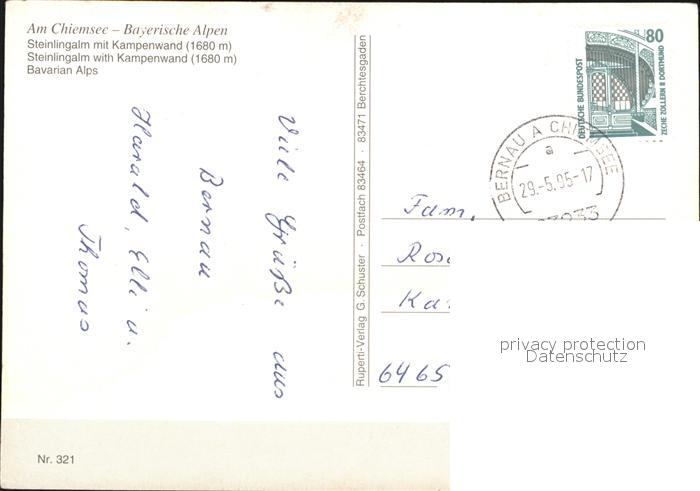 Am Chiemsee – Bayerische Alpen
Steinlingalm mit Kampenwand (1680 m)
Steinlingalm with Kampenwand (1680 m)
Bavarian Alps
Viele Grüße aus
Bernau
Harald, Elli u.
Thomas
Nr. 321
Ruperti-Verlag G. Schuster · Postfach 83464 · 83471 Berchtesgaden
80
DEUTSCHE BUNDESPOST
ZECHE ZOLLERN II DORTMUND
BERNAU A CHIEMSEE
a
29.-5.95-17
83233
Fam.
Ros
Ka
6465
privacy protection
Datenschutz